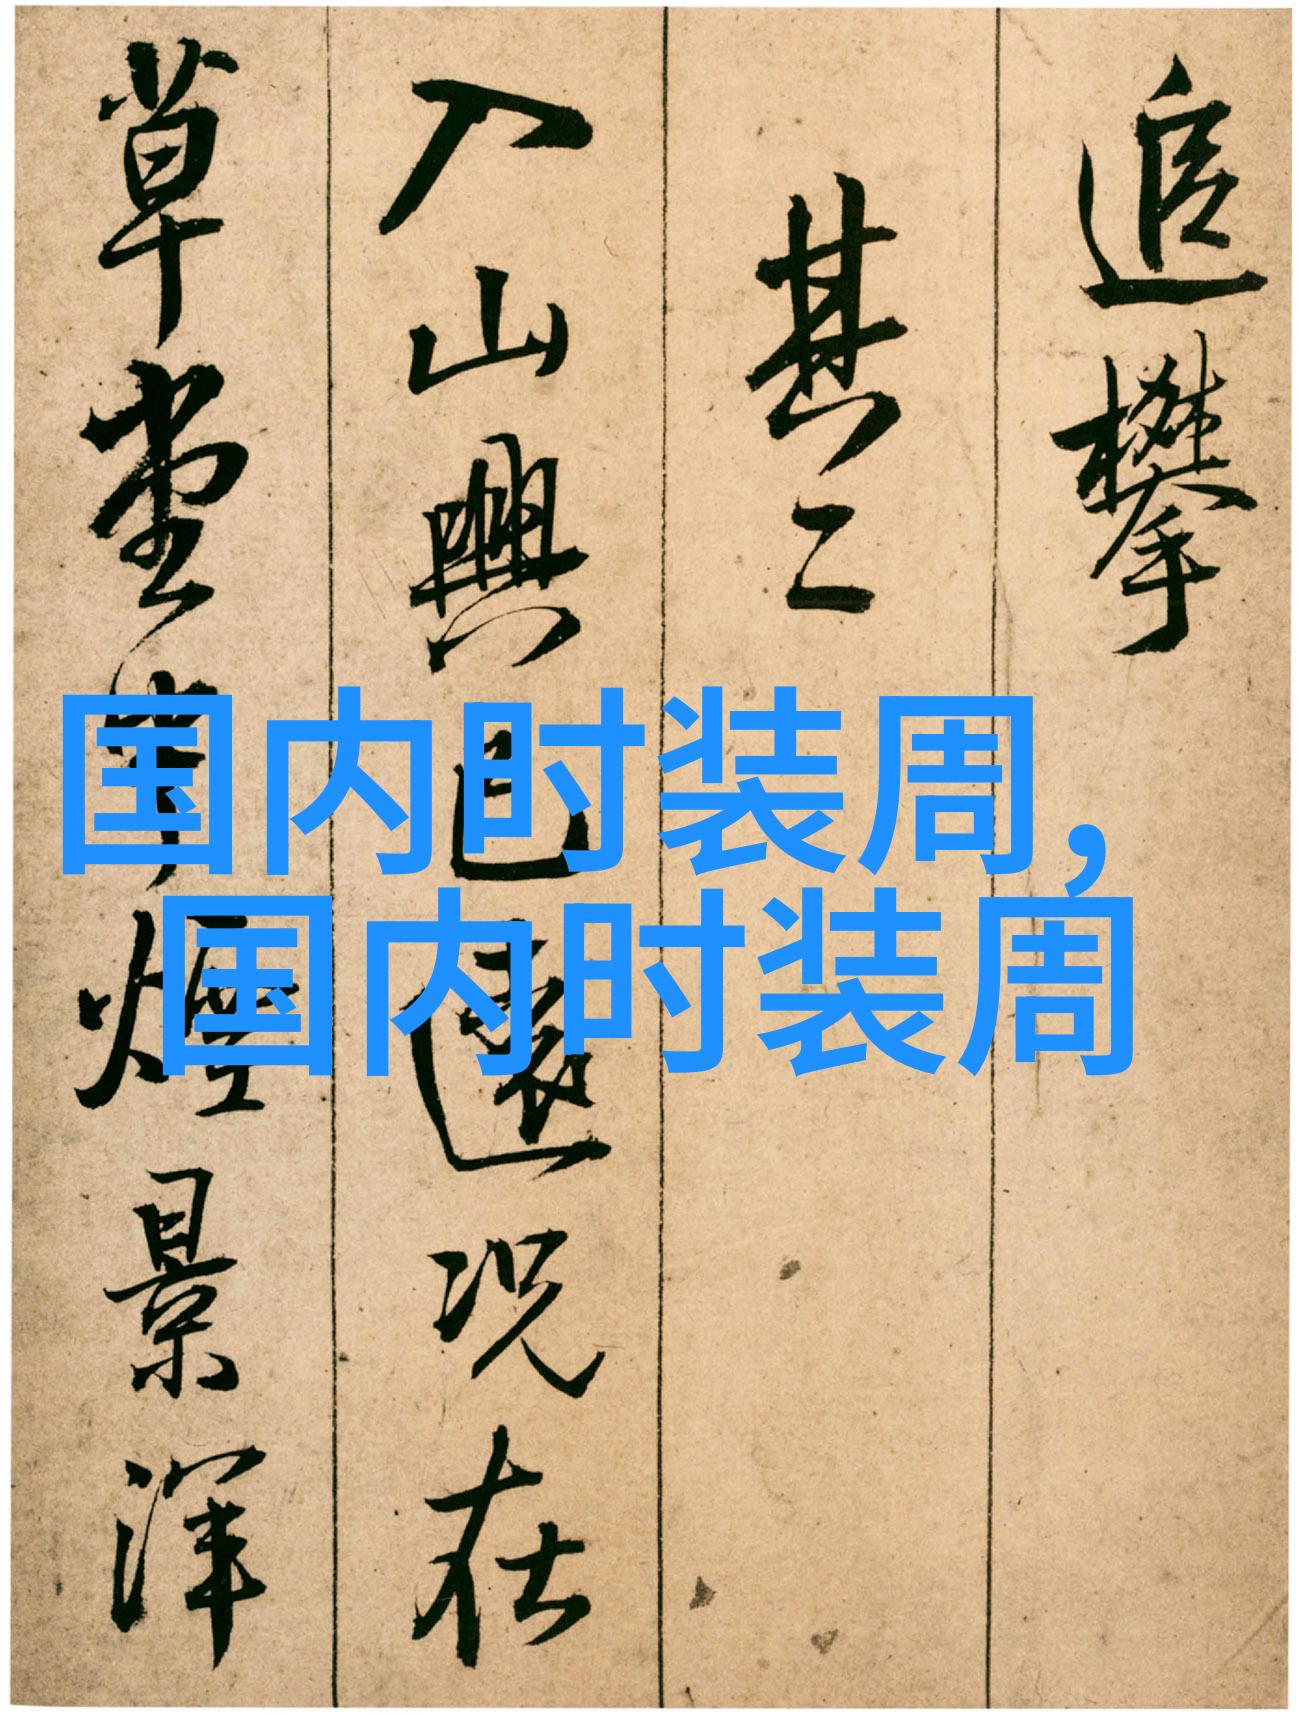 追攀
其二
入山興已遠况在
草堂
煙景渾
国内时装周,
国内时装周